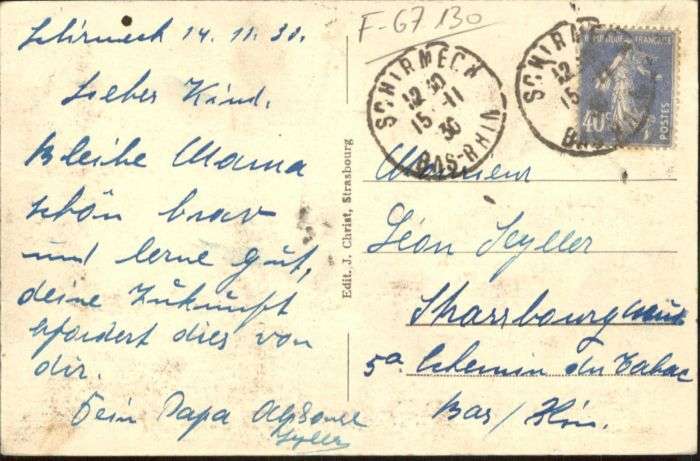 Schirmeck 14.11.30.
Lieber Kind.
Bleibe Mama
schön brav
und lerne gut,
deine Zukunft
erfordert dies von
dir.
Dein Papa Alphonse
Seyller
Edit. J. Christ, Strasbourg
F-67 130
SCHIRMECK
12 30
15 -11
30
BAS-RHIN
SCHIRME
12
15
BAS
FRANÇAISE
40c
POSTES
Monsieur
Léon Seyller
Strassbourg
5a Chemin du Tabac
Bas / Rhin.